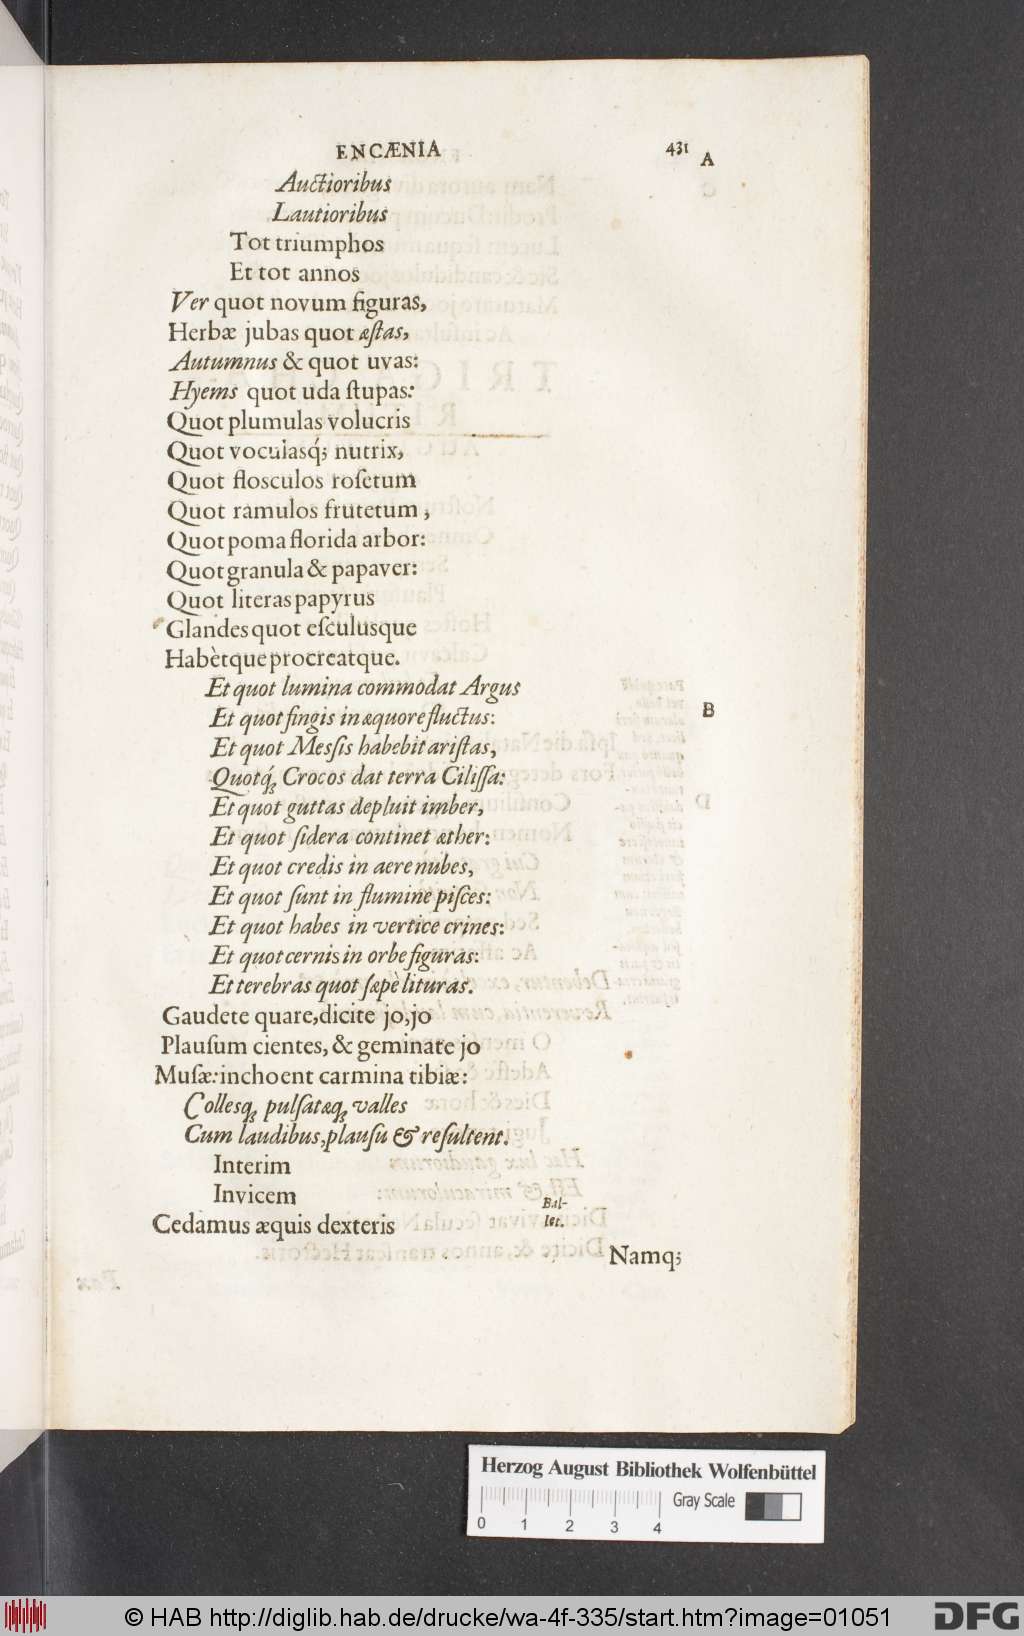 ENCÆNIA 431
A
Auctioribus
Lautioribus
Tot triumphos
Et tot annos
Ver quot novum figuras,
Herbæ jubas quot æſtas,
Autumnus & quot uvas:
Hyems quot uda ſtupas:
Quot plumulas volucris
Quot voculasq́; nutrix,
Quot flosculos roſetum
Quot ramulos frutetum,
Quot poma florida arbor:
Quot granula & papaver:
Quot literas papyrus
Glandes quot eſculusque
Habètque procreatque.
Et quot lumina commodat Argus
B
Et quot fingis in æquore fluctus:
Et quot Meſsis habebit ariſtas,
Quotq́; Crocos dat terra Ciliſſa:
Et quot guttas depluit imber,
Et quot ſidera continet æther:
Et quot credis in aere nubes,
Et quot ſunt in flumine piſces:
Et quot habes in vertice crines:
Et quot cernis in orbe figuras:
Et terebras quot ſæpè lituras.
Gaudete quare, dicite jo, jo
Plauſum cientes, & geminate jo
Muſæ: inchoent carmina tibiæ:
Collesq; pulſatæq; valles
Cum laudibus, plauſu & reſultent.
Interim
Invicem
Bal-
let.
Cedamus æquis dexteris
Namq;
Herzog August Bibliothek Wolfenbüttel
Gray Scale
0 1 2 3 4
© HAB http://diglib.hab.de/drucke/wa-4f-335/start.htm?image=01051
DFG